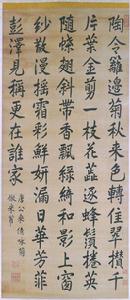 陶令籬邊菊秋來色轉佳翠攢千
片葉金剪一枝花蕊逐蜂鬚亂英
隨蝶翅斜帶香飄綠綺和酒上烏
紗散漫搖霜彩嬌妍漏日華芳菲
彭澤見稱更在誰家
唐公乘億詠菊